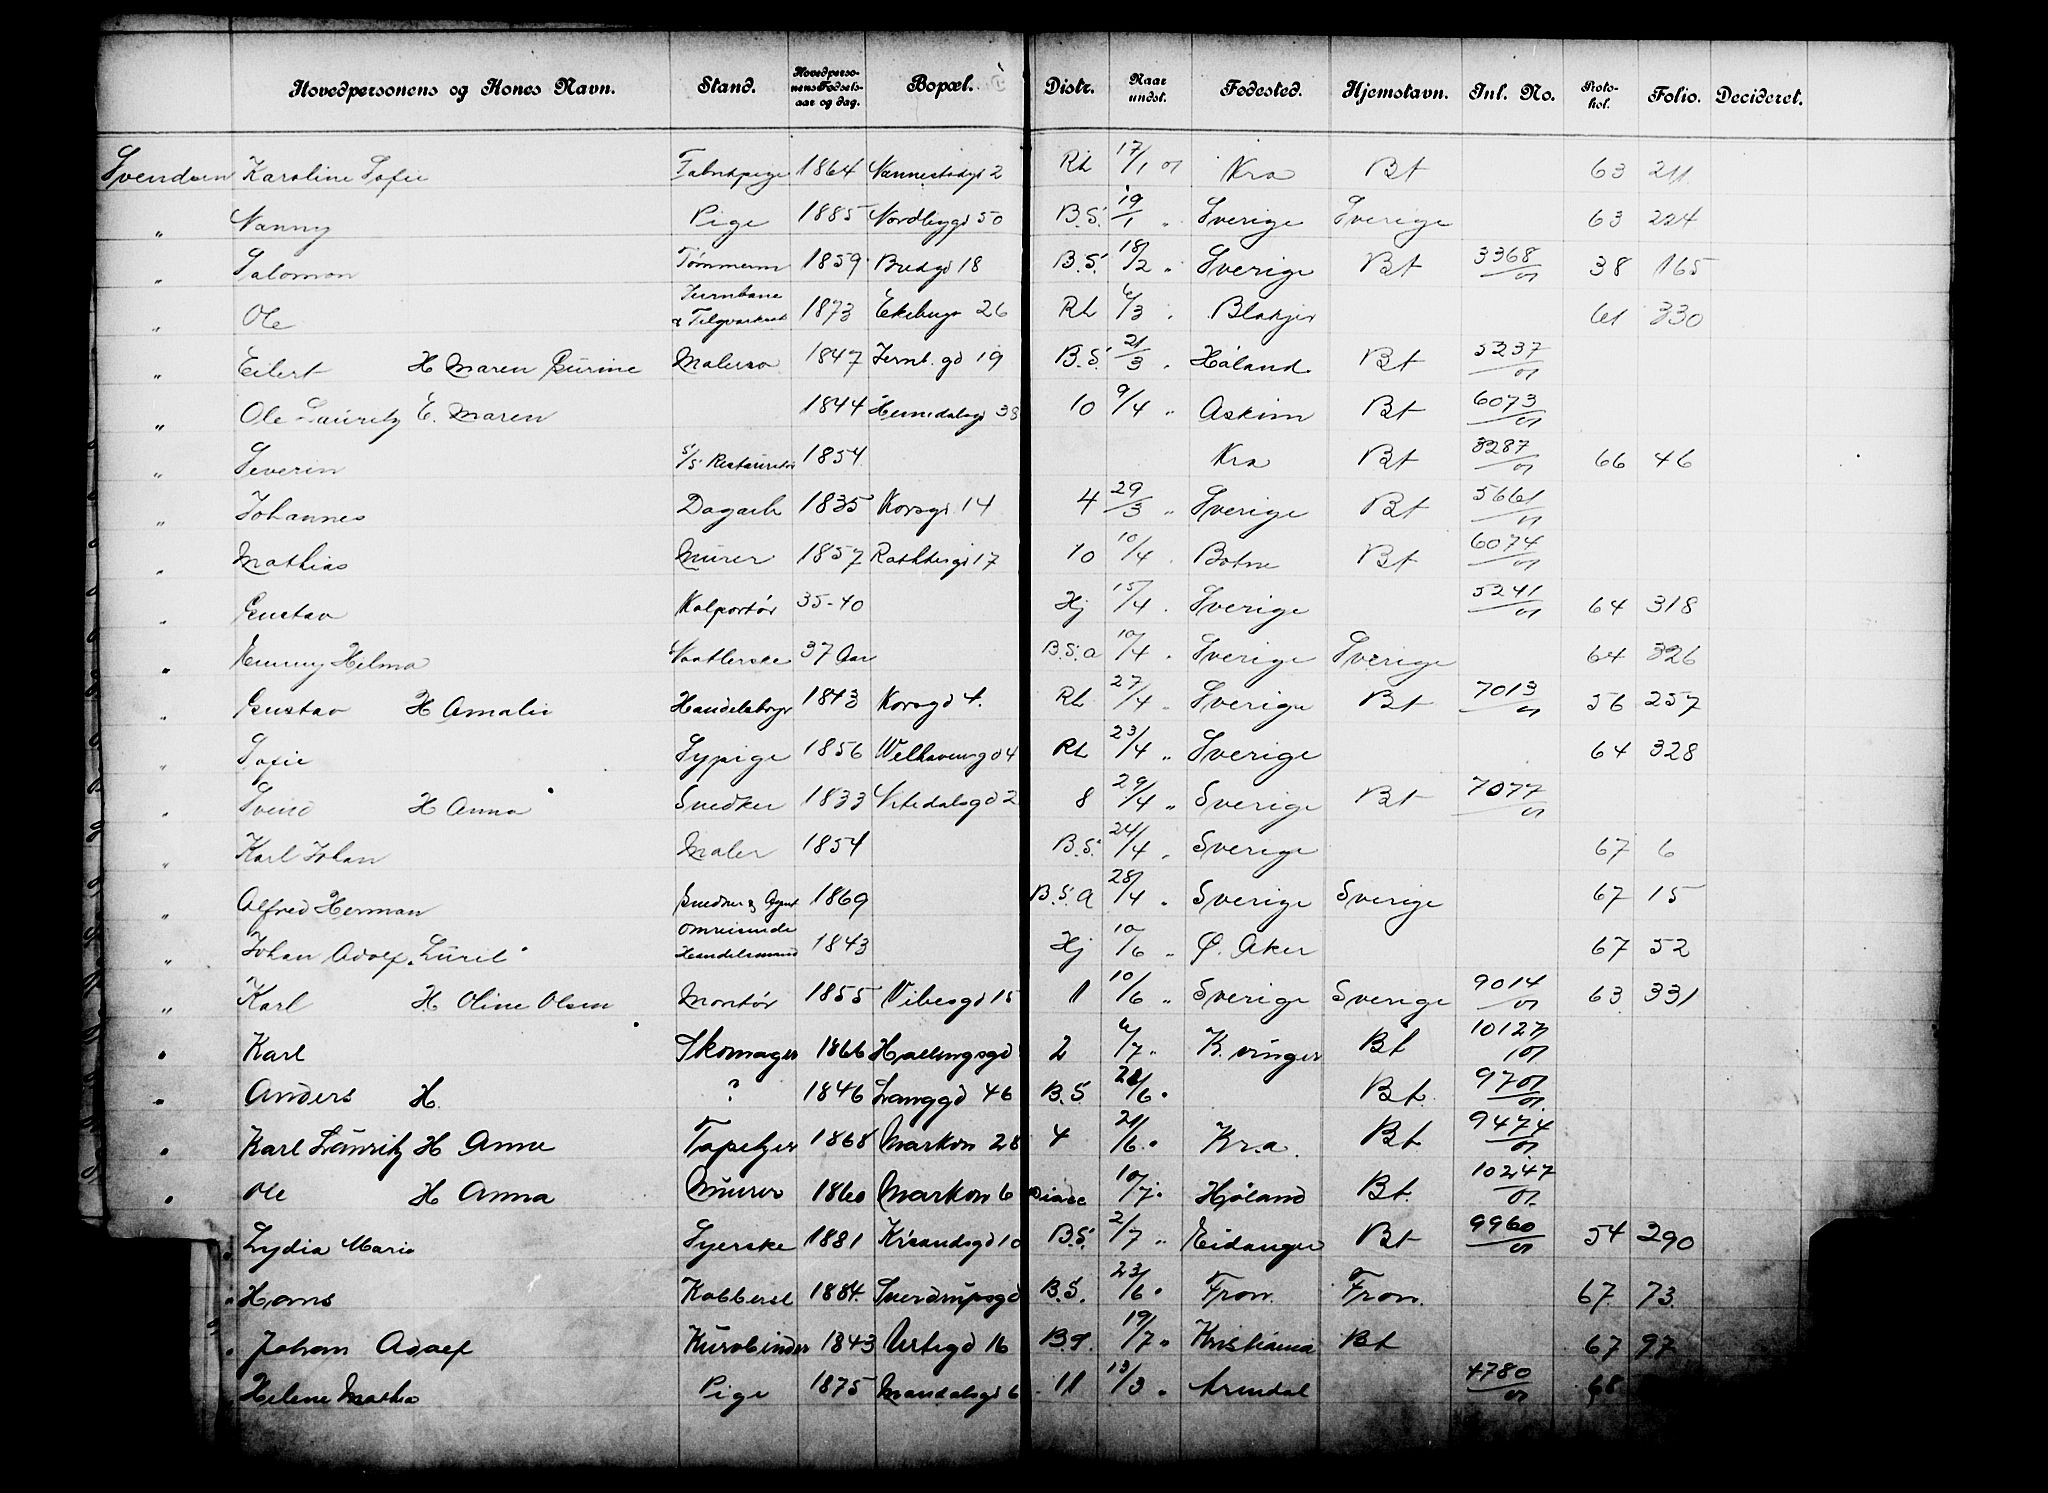 Hovedpersonens og Kones Navn. Stand. Hovedperso-nens Fødsels-aar og dag. Bopæl. Distr. Naar undst. Fødested. Hjemstavn. Inl. No. Proto-kol. Folio. Decideret.
Svendsen Karoline Sofie Fabrikpige 1864 Nannestadgd 2 Rh 17/1 01 Kra Bt 63 211
" Nanny Pige 1885 Nordbygd 50 B.S. 19/1 " Sverige Sverige 63 224
" Salomon Tømmerm 1859 Bredgd 18 B.S. 18/2 " Sverige Bt 3368/01 38 165
" Ole Jernbane & Telgrafarb 1873 Ekebergv 26 Rh 6/3 " Blakjer 61 330
" Eilert H Maren Gurine Malersv 1847 Jernb.gd 19 B.S. 21/3 " Høland Bt 5237/01
" Ole Lauritz E. Maren 1844 Hemedalsgd 38 10 9/4 " Askim Bt 6073/01
" Severin S/S Restauratør 1854 Kra Bt 3287/01 66 46
" Johannes Dagarb 1835 Korsgd 14 4 29/3 " Sverige Bt 5661/01
" Mathias Murer 1857 Rathkesgd 17 10 10/4 " Botne Bt 6074/01
" Gustav Kolportør 35-40 Hj 15/4 " Sverige 5241/01 64 318
" Hilma Vaatlerske 37 Aar B.S.a 10/4 " Sverige Sverige 64 326
" Gustav H Amalie Handelsbgr 1843 Korsgd 4. Rh 27/4 " Sverige Bt 7013/01 56 257
" Sofie Sypige 1856 Welhavensgd 4 Rh 23/4 " Sverige 64 328
" Svend H Anna Snedker 1833 Nitedalsgd 2 8 29/4 " Sverige Bt 7077/01
" Karl Johan Maler 1854 B.S. 24/4 " Sverige 67 6
" Alfred Herman Snedker & Agent 1869 B.S.a 28/4 " Sverige Sverige 67 15
" Johan Adolf "Luril" Omreisende Handelsmand 1843 Hj 10/6 " Ø. Aker 67 52
" Karl H Oline Olsen Montør 1855 Vibesgd 15 11 10/6 " Sverige Sverige 9014/01 63 331
" Karl Skomager 1866 Hallingsgd 2 6/7 " K.vinger Bt 10127/01
" Anders H. ? 1846 Langgd 46 B.S. /6 " Bt. 9701/01
" Karl Lauritz H Anne Tapetzer 1868 Markvn 28 4 21/6 " Kra. Bt 9474/01
" Ole H Anna Murer 1860 Markvn 6 10/7 " Høland Bt. 10247/01
" Lydia Marie Syerske 1881 Kr'sandsgd 10 B.S. 2/7 " Eidanger Bt 9960/01 54 290
" Hans Kobbersl 1884. Sverdrupsgd B.S. 23/6 " Fron. Fron. 67. 73.
" Johan Adolf Kurvbinder 1843 Urtegd 16 19/7 " Kristiania Bt 67 97
Helene Mathea Pige 1875 Mandalsgd 6 11 13/3 " Arendal 4780/01 68